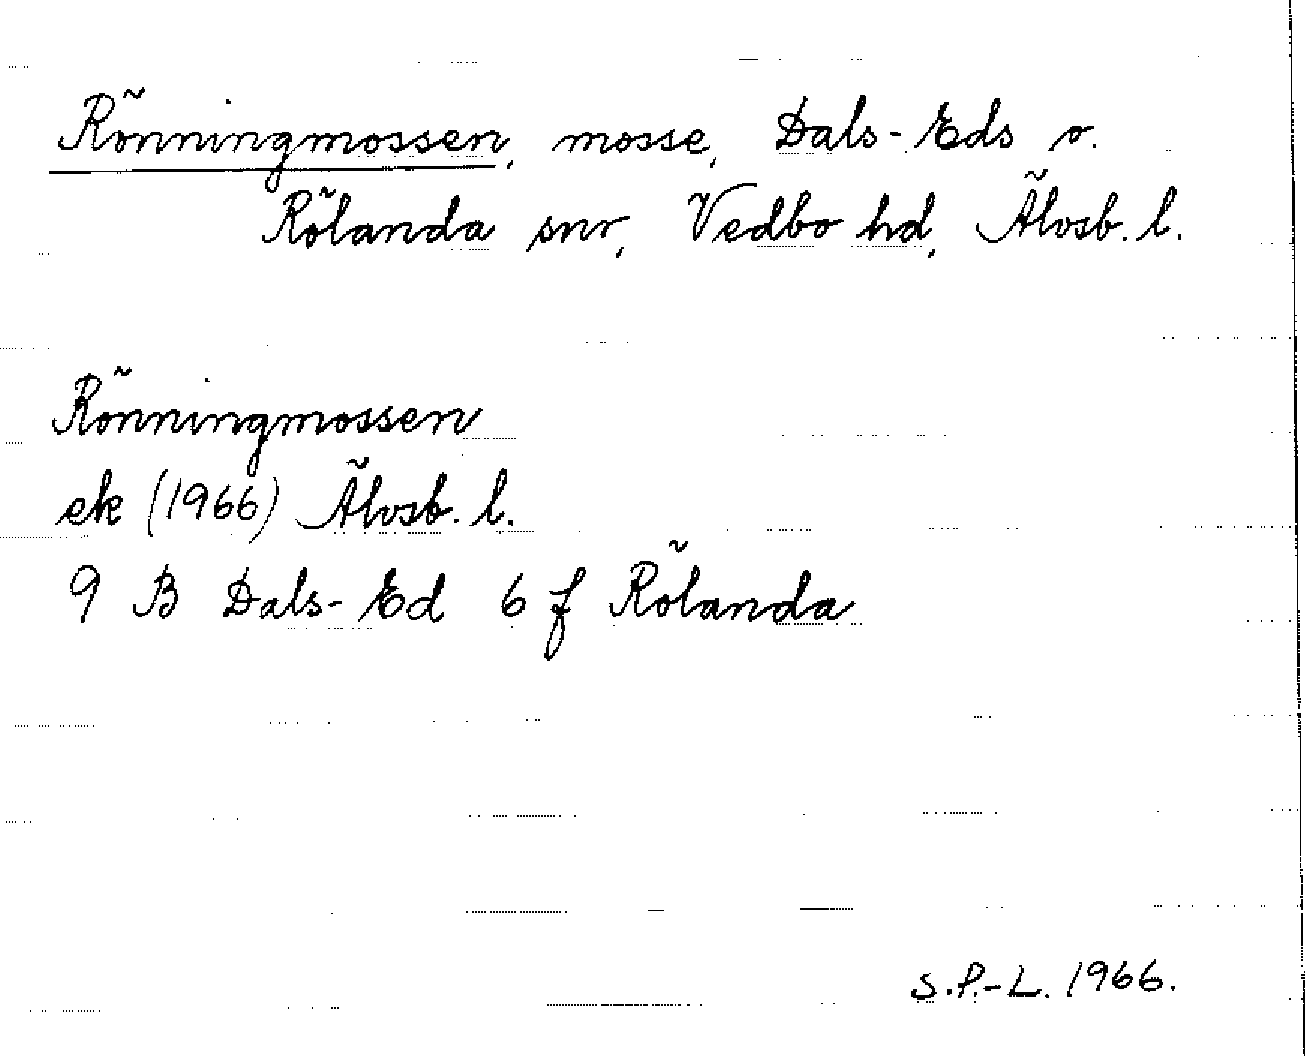 Rönningmossen, mosse, Dals-Eds o.
Rölanda snr, Vedbo hd, Älvsb. l.
Rönningmossen
ek (1966) Älvsb. l.
9 B Dals-Ed 6 f Rölanda
S.P.-L. 1966.